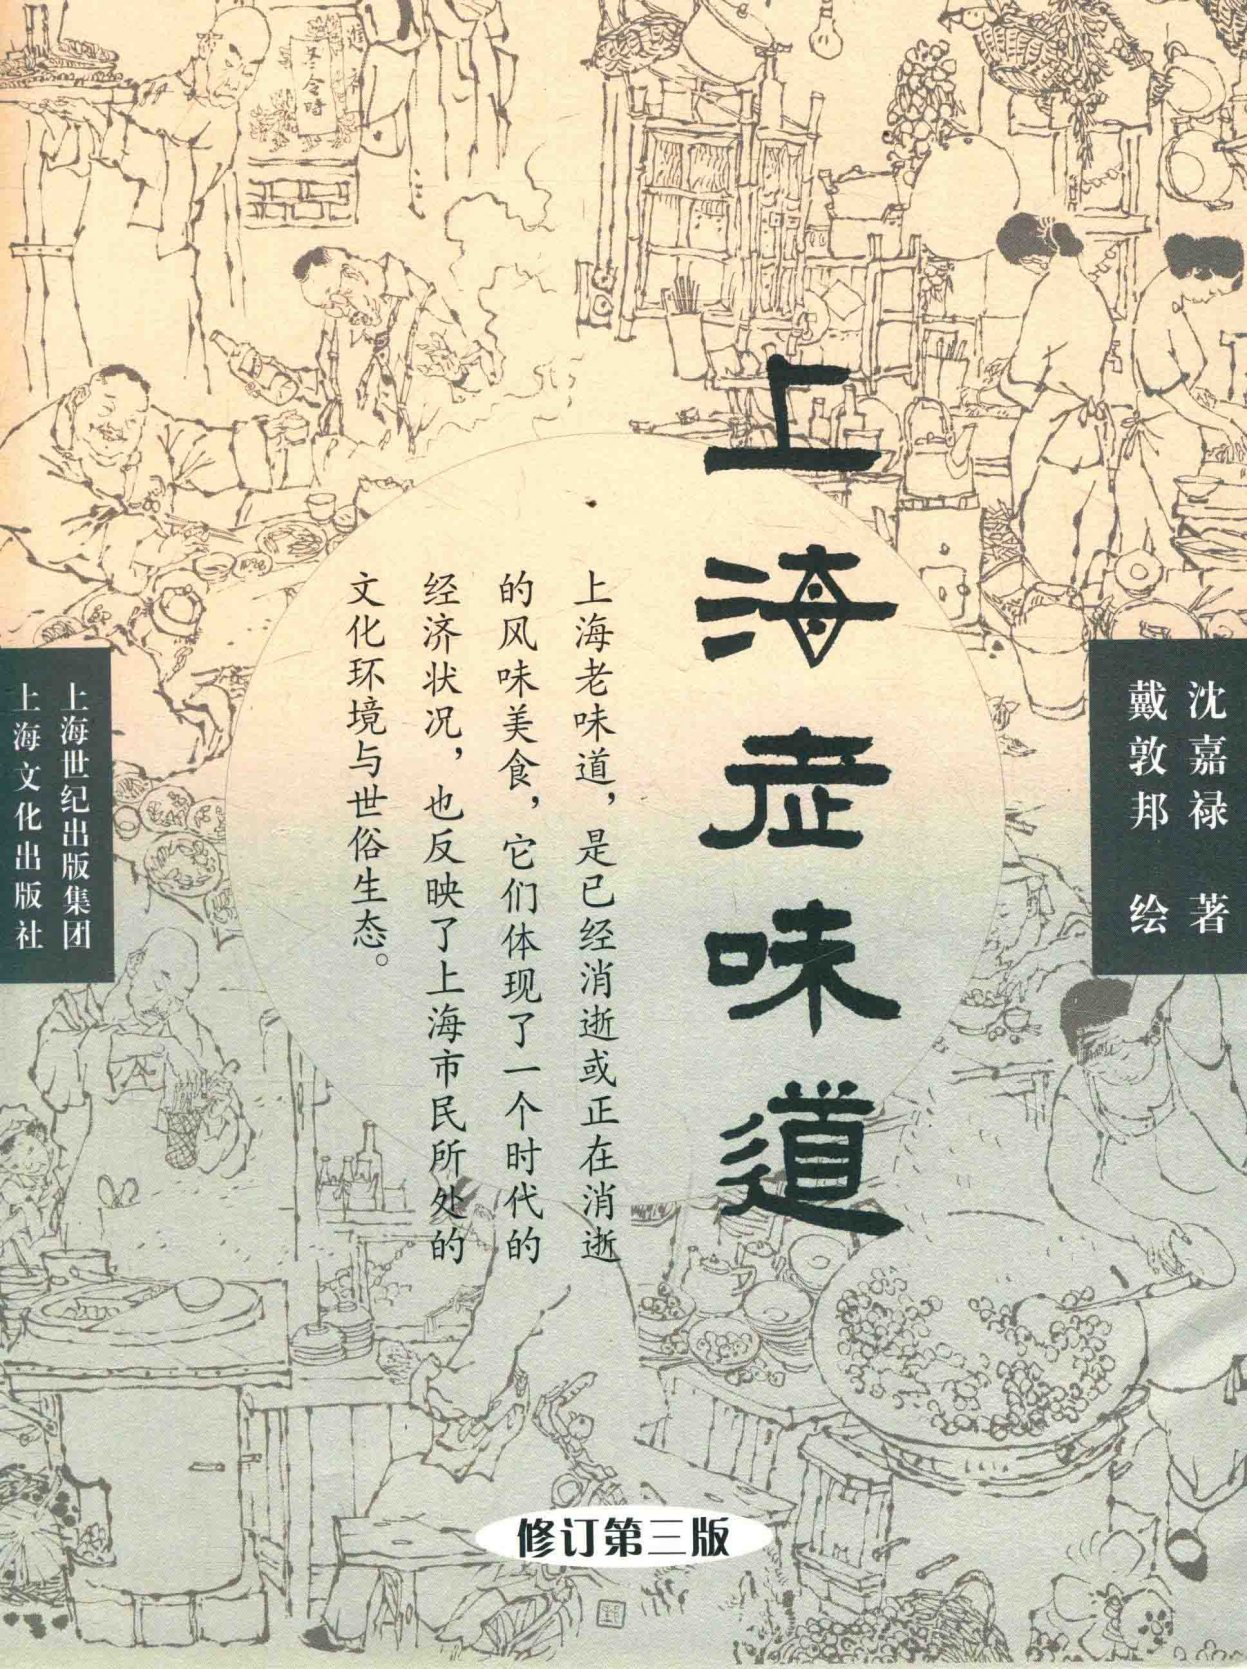 沈嘉禄 著
戴敦邦 绘
上海老味道
上海老味道，是已经消逝或正在消逝
的风味美食，它们体现了一个时代的
经济状况，也反映了上海市民所处的
文化环境与世俗生态。
上海世纪出版集团
上海文化出版社
修订第三版